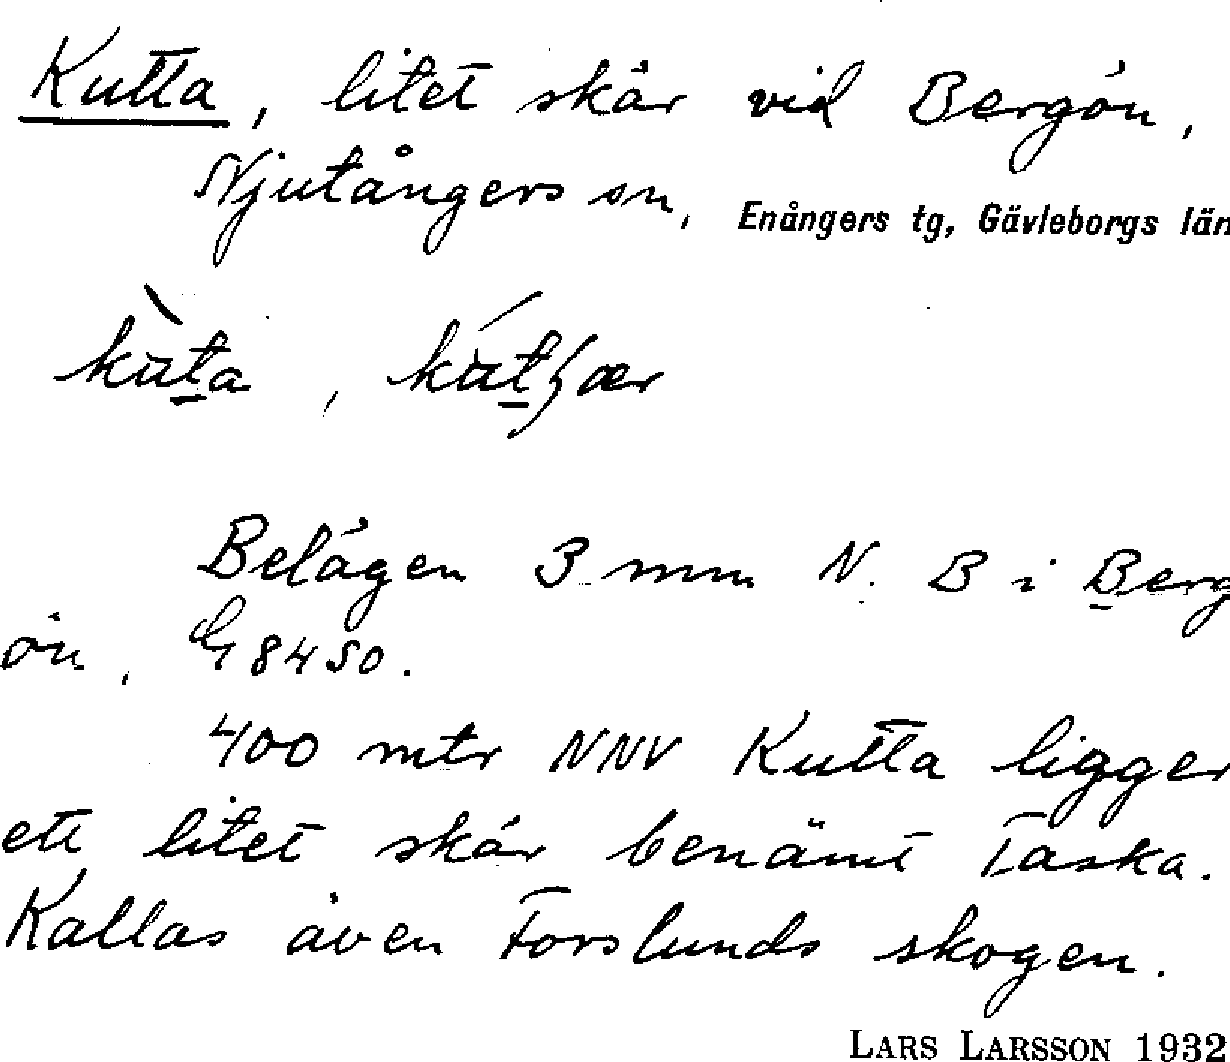 Kutta, litet skär vid Bergön,
Njutångers sn, Enångers tg, Gävleborgs län
Belägen 3 mm N. B i Berg
ön, G 8450.
400 mtr NNV Kutta ligger
ett litet skär benämt Taska.
Kallas även Forslunds skogen.
LARS LARSSON 1932